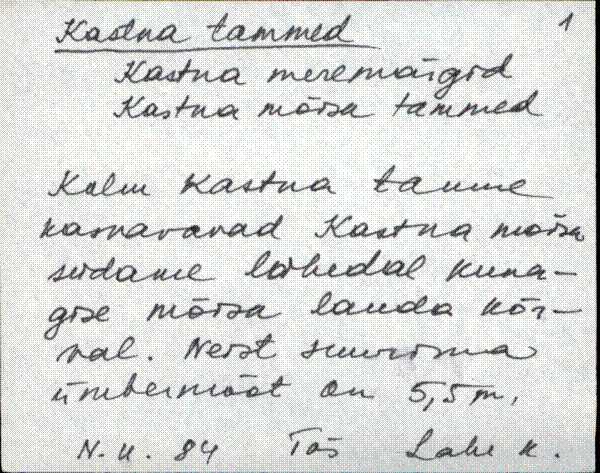 Kastna tammed 1
Kastna meremärgid
Kastna mõisa tammed
Kolm Kastna tamme
kasvavad Kastna mõisa
südame lähedal kuna-
gise mõisa lauda kõr-
val. Neist suurima
ümbermõõt on 5,5 m.
N. U. 84 Tõs Lahe k.